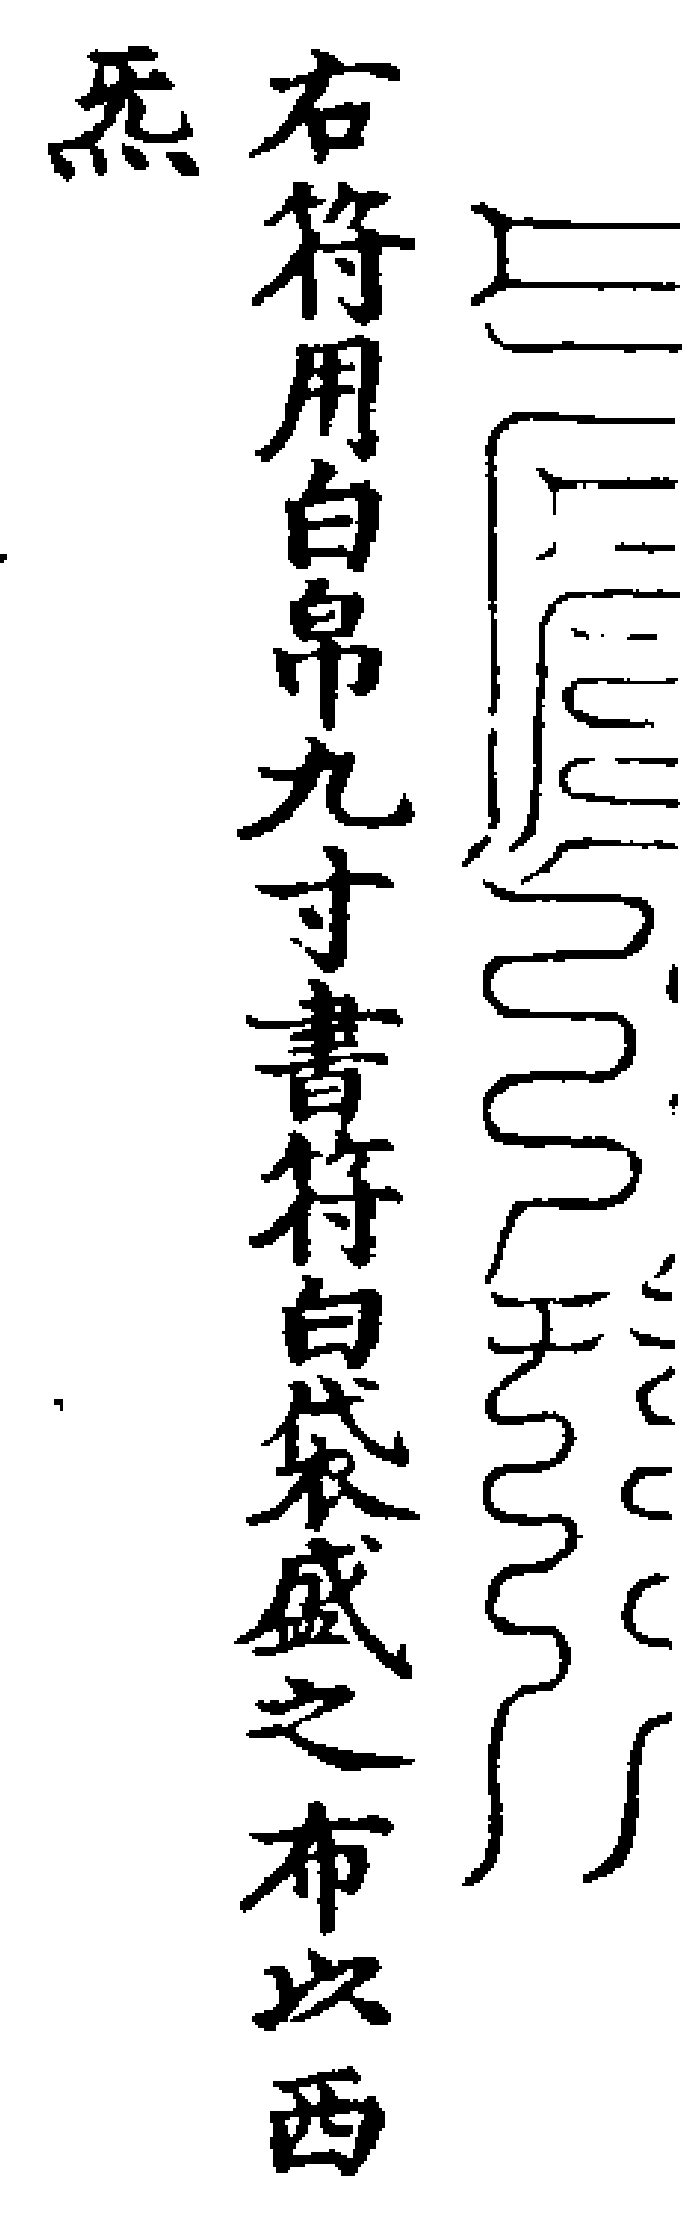 右符用白帛九寸書符白袋盛之布以西
炁